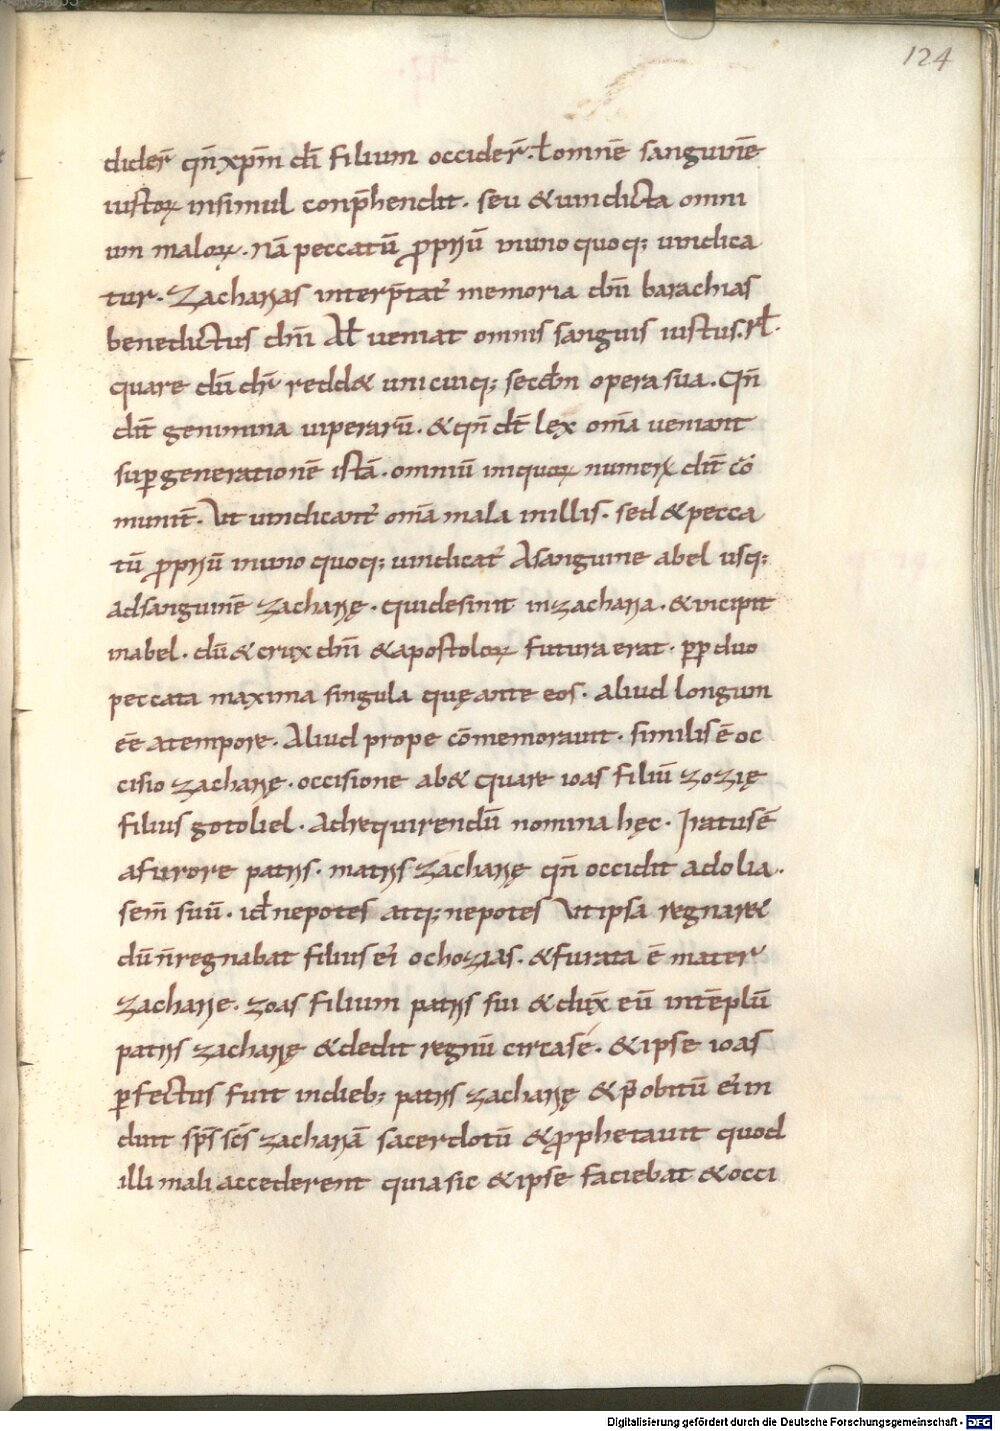 124
dider̄ qn̄ xp̄m dī filium occider̄. ł omnē sanguinē
iustoꝝ insimul conp̄hendit. seu & uindicta omni
um maloꝝ. nā peccatū ꝓpriū in uno quoq; uindica
tur. Zacharias interp̄tat᷒ memoria dn̄i barachias
benedictus dn̄i Aƚ ueniat omnis sanguis iustus. rƚ.
quare dū dr̄ redd& unicuiq; secdm̄ opera sua. qn̄
dīt genimina uiperarū. & qn̄ dt̄ lex om̄a ueniant
suꝑ generationē istā. omniū iniquoꝝ numerꝝ dīt cō
munit̄. Ut uindicant᷒ om̄a mala in illis. sed & pecca
tū ꝓpriū in uno quoq; uindicat᷒ A sanguine abel usq;
ad sanguinē zacharię. qui desinit in zacharia. & incipit
in abel. dū & crux dn̄i & apostoloꝝ futura erat. ꝑꝑ duo
peccata maxima singula quę ante eos. aliud longum
ēē a tempore. Aliud prope cōmemorauit. similis ē oc
cisio zacharię. occisione ab& quare ioas filiū zozię
filius gotoliel. Ad requirendū nomina hęc. Iratus ē
a furore patris. matris zacharię qn̄ occidit adolia.
sem̄ suū. idƚ nepotes atq; nepotes Ut ipsa regnar&
dū n̄ regnabat filius ei᷒ ochozias. & furata ē mater
zacharie. zoas filium patris sui & dux̄ eū in tēplū
patris zacharię & dedit regnū circa se. & ipse ioas
ꝑfectus fuit in dieb; patris zacharię & p̄ obitū ei᷒ in
duit sp̄s sc̄s zachariā sacerdotū & ꝓphetauit quod
illi mali accederent quia sic & ipse faciebat & occi
Digitalisierung gefördert durch die Deutsche Forschungsgemeinschaft - DFG